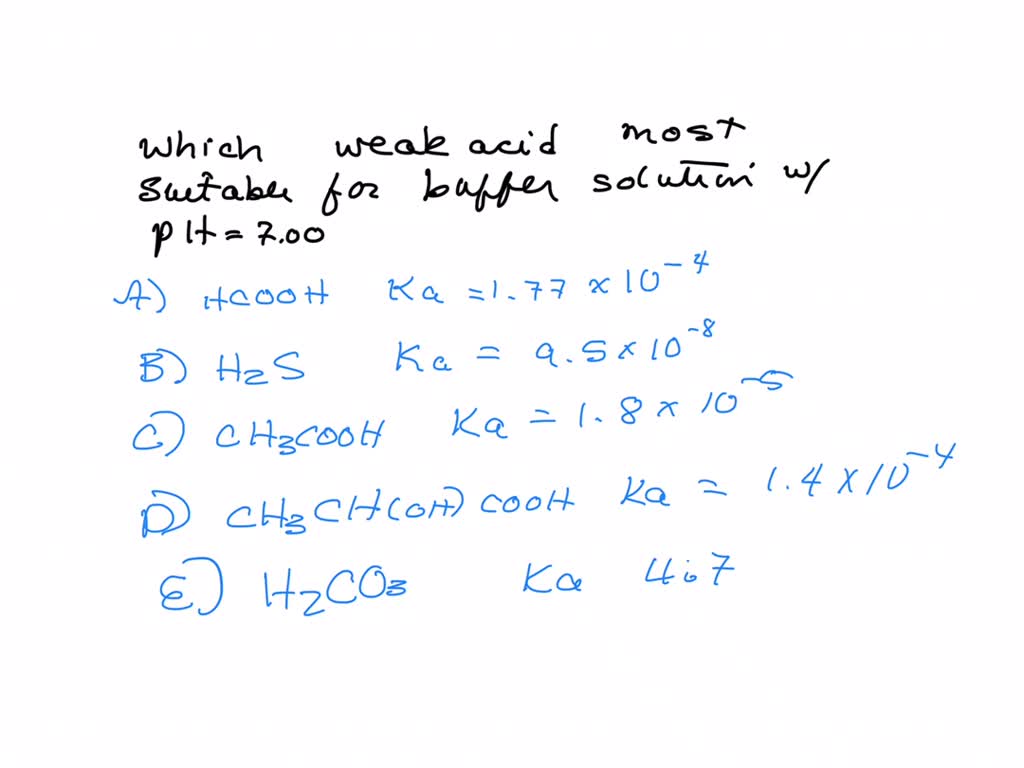 which weak acid most
suitable for buffer solution w/
pH = 7.00
A) HCOOH Ka = 1.77 × 10⁻⁴
B) H₂S Ka = 9.5 × 10⁻⁸
C) CH₃COOH Ka = 1.8 × 10⁻⁵
D) CH₃CH(OH)COOH Ka = 1.4 × 10⁻⁴
E) H₂CO₃ Ka 4.7